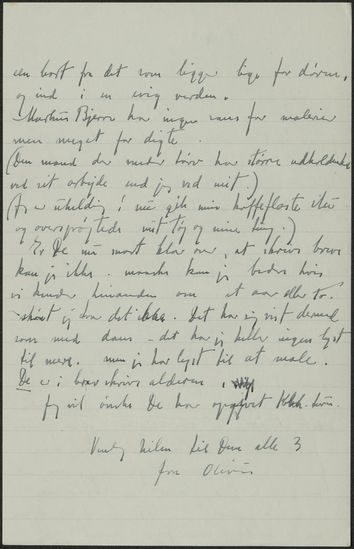 een bort fra det som ligger lige for døren,
og ind i en evig verden.
Markus Bjerre har ingen sans for malerier
men meget for digte.
(Den mand der vender har større udholdenhed
ved sit arbejde end jeg ved mit.)
(Jeg er uheldig i nu gik min kaffeflaske itu
og oversprøjtede mit tøj og mine ting.)
Er De nu snart klar over, at skrive breve
kan jeg ikke. maaske kan jeg bedre hvis
vi kender hinanden om et aar eller to.
skønt jeg tror det ikke. Det har sig vist dermed
som med dans - det har jeg heller ingen lyst
til mere. men jeg har lyst til at male.
De er i brevskrive alderen.
Jeg vil ønske De har opgivet
Venlig hilsen til Dem alle 3
fra Olivia